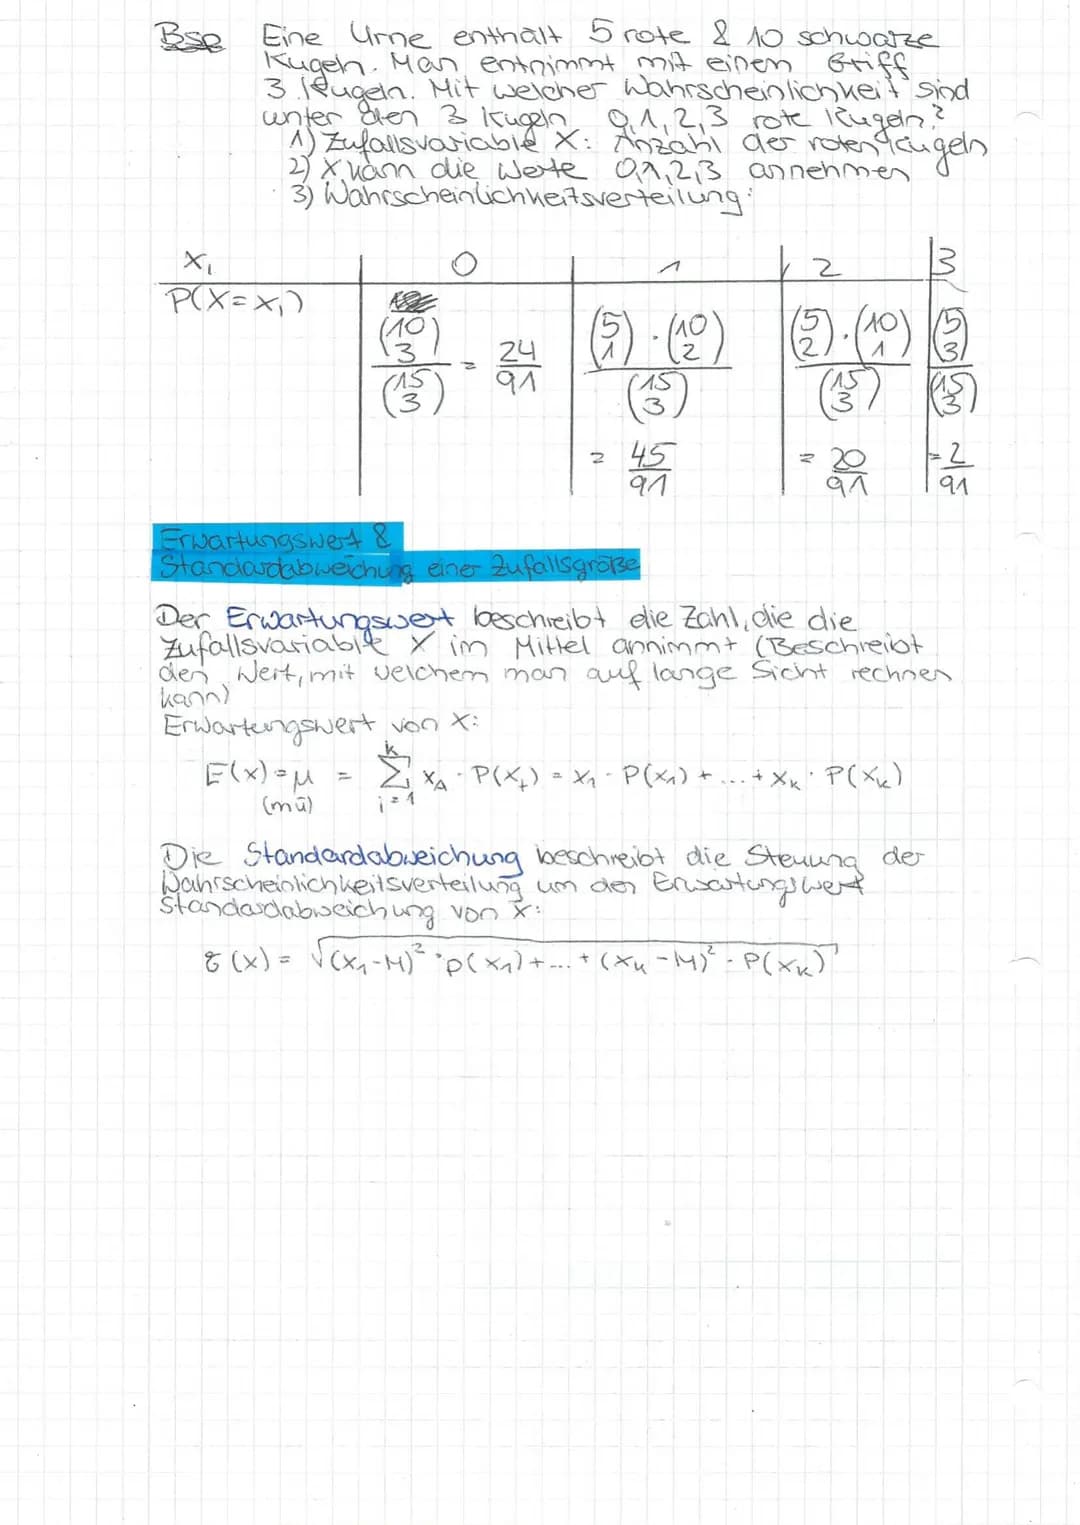 Bsp Eine Urne enthält 5 rote & 10 schwarze
Kugeln. Man entnimmt mit einem Griff
3 Kugeln. Mit welcher Wahrscheinlichkeit sind
unter den 3 Kugeln 0,1,2,3 rote Kugeln?
1) Zufallsvariable X: Anzahl der roten Kugeln
2) X kann die Werte 0,1,2,3 annehmen
3) Wahrscheinlichkeitsverteilung:
x₁ 0 1 2 3
P(X=x₁) (10 3)/(15 3) = 24/91 (5 1)·(10 2)/(15 3) (5 2)·(10 1)/(15 3) (5 3)/(15 3)
= 45/91 = 20/91 = 2/91
Erwartungswert &
Standardabweichung einer Zufallsgröße
Der Erwartungswert beschreibt die Zahl, die die
Zufallsvariable X im Mittel annimmt (Beschreibt
den Wert, mit welchem man auf lange Sicht rechnen
kann)
Erwartungswert von X:
E(x) = μ = k Σ i=1 x₁ · P(x₁) = x₁ · P(x₁) + ... + xₖ · P(xₖ)
(mü)
Die Standardabweichung beschreibt die Streuung der
Wahrscheinlichkeitsverteilung um den Erwartungswert
Standardabweichung von X:
σ(x) = √(x₁-M)² · P(x₁) + ... + (xₖ-M)² · P(xₖ)